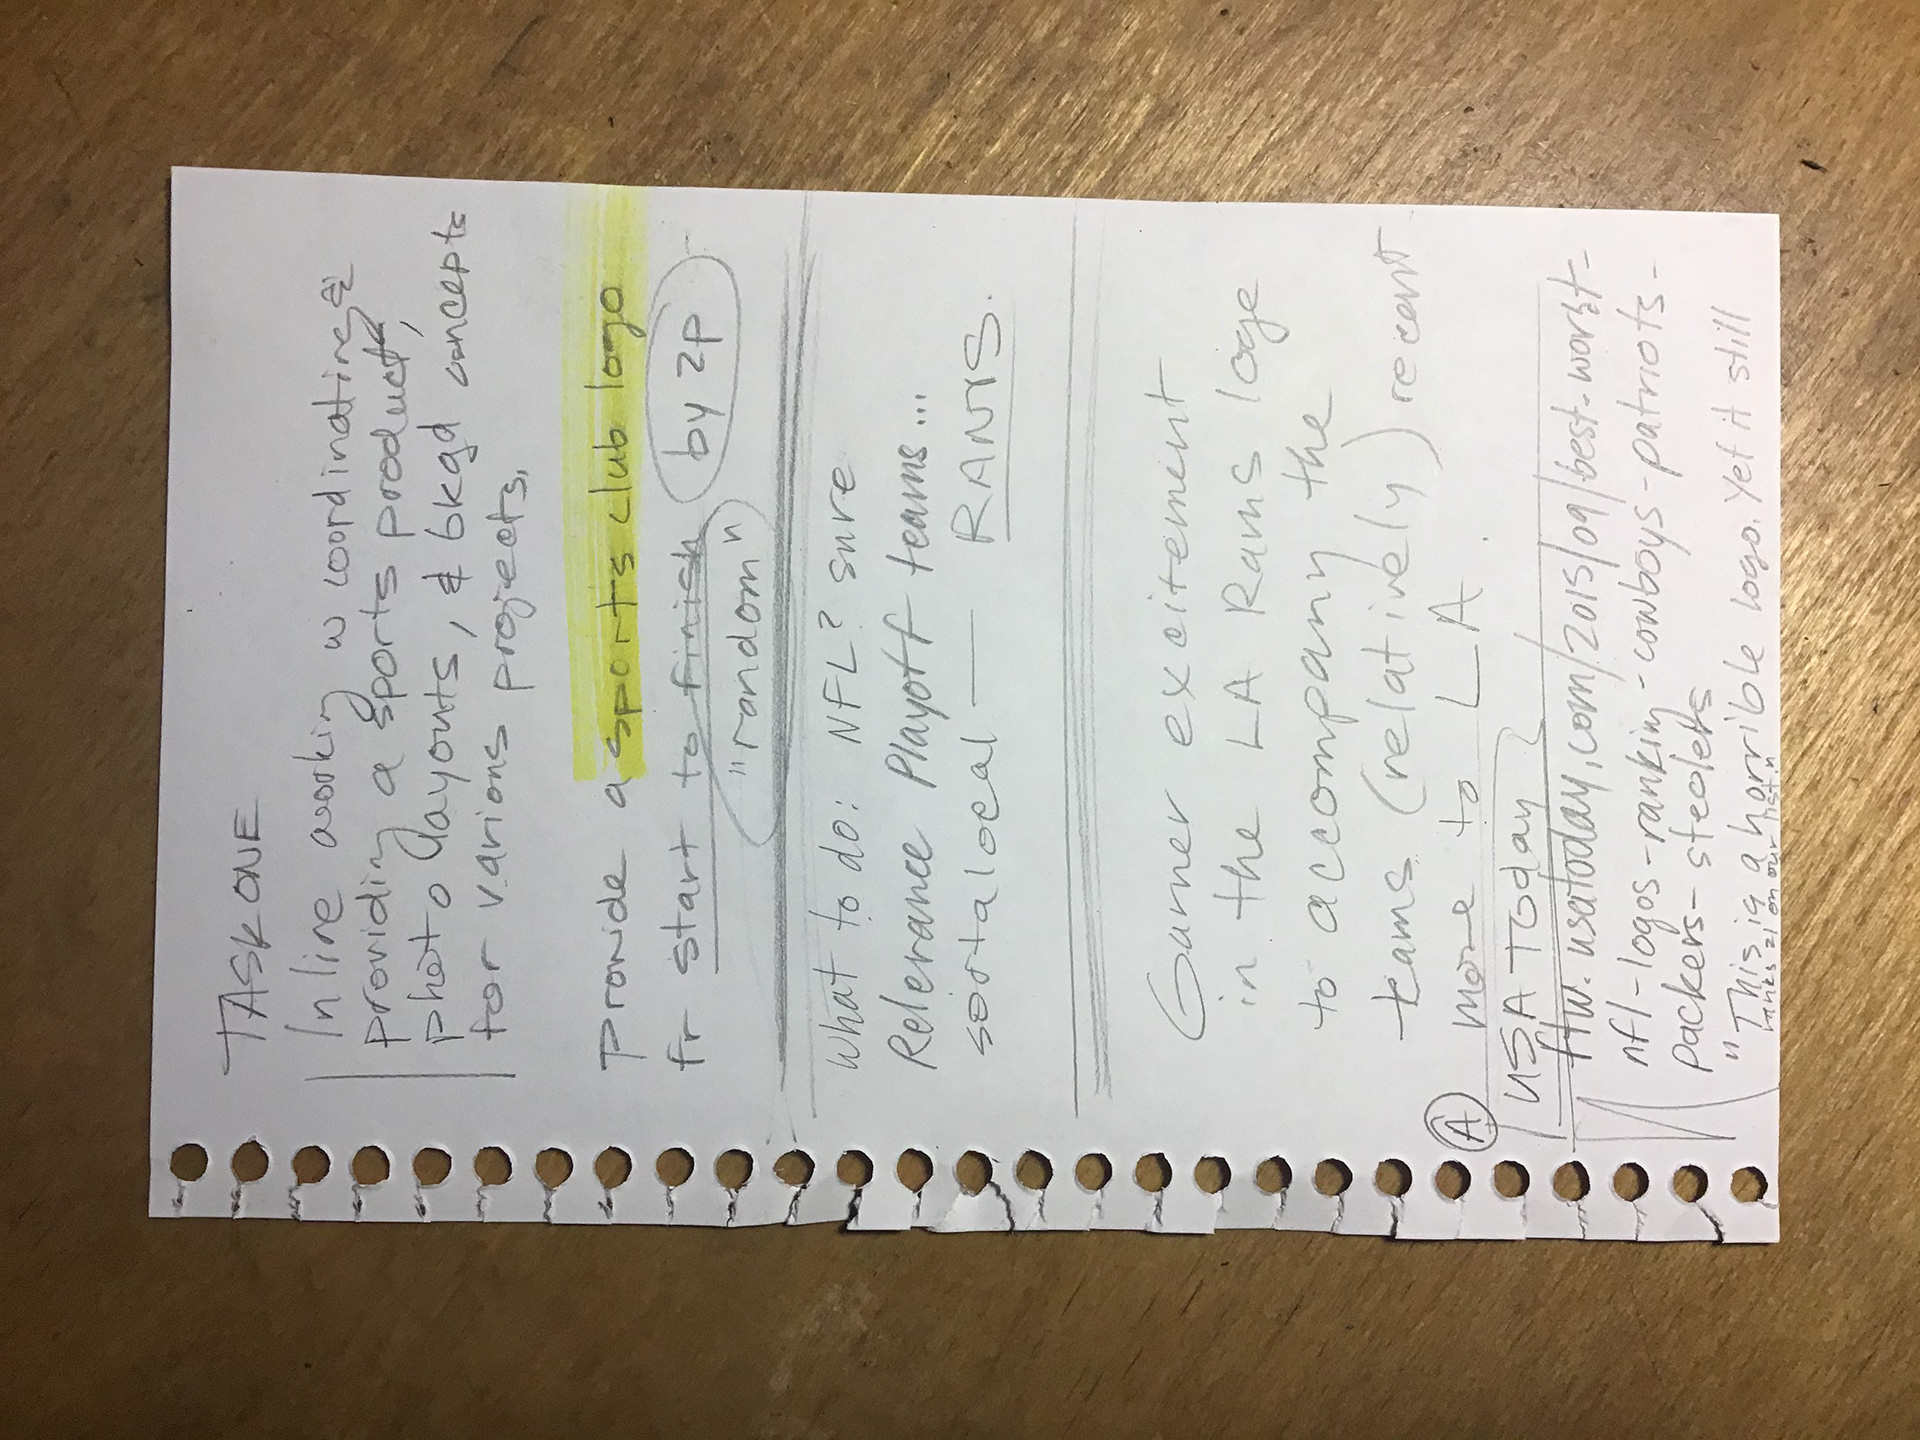 TASK ONE
In line working w coordinating &
providing a sports product,
photo layouts, & bkgd concepts
for various projects.
Provide a sports club logo
fr start to finish by 2p
"random"
What to do: NFL? sure
Relevance Playoff teams...
sorta local — RAMS.
Garner excitement
in the LA Rams loge
to accompany the
teams (relatively) recent
move to LA.
A USA TODAY
ftw.usatoday.com/2015/09/best-worst-
nfl-logos-ranking-cowboys-patriots-
packers-steelers
"This is a horrible logo. Yet it still
ranks 21 on our list."